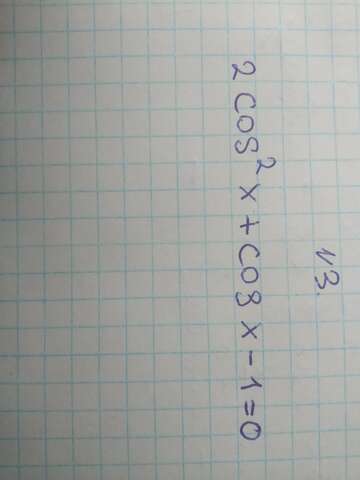 N3.
2 cos² x + cos x - 1 = 0